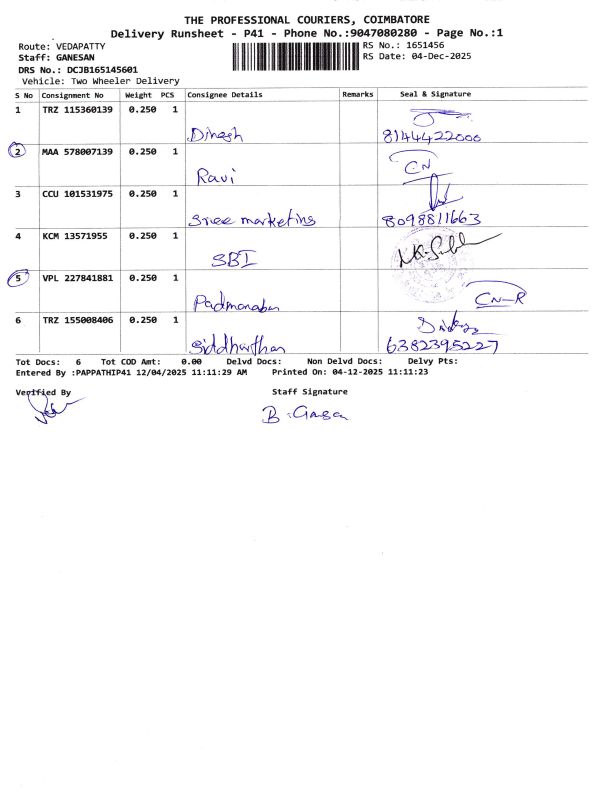 THE PROFESSIONAL COURIERS, COIMBATORE
Delivery Runsheet - P41 - Phone No.:9047080280 - Page No.:1
Route: VEDAPATTY
RS No.: 1651456
Staff: GANESAN
RS Date: 04-Dec-2025
DRS No.: DCJB165145601
Vehicle: Two Wheeler Delivery
S No Consignment No Weight PCS Consignee Details Remarks Seal & Signature
1 TRZ 115360139 0.250 1
Dinesh 8144422000
2 MAA 578007139 0.250 1
Ravi CN
3 CCU 101531975 0.250 1
Sree marketing 8098811663
4 KCM 13571955 0.250 1
SBI
5 VPL 227841881 0.250 1
Padmanaban CN-R
6 TRZ 155008406 0.250 1
Siddharthan 6382395227
Tot Docs: 6 Tot COD Amt: 0.00 Delvd Docs: Non Delvd Docs: Delvy Pts:
Entered By :PAPPATHIP41 12/04/2025 11:11:29 AM Printed On: 04-12-2025 11:11:23
Verified By Staff Signature